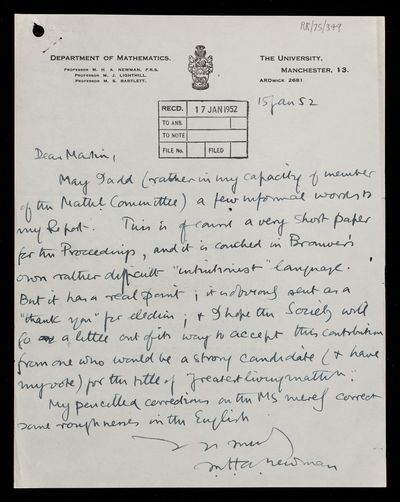 RR/75/349
DEPARTMENT OF MATHEMATICS.
PROFESSOR M. H. A. NEWMAN, F.R.S.
PROFESSOR M. J. LIGHTHILL.
PROFESSOR M. S. BARTLETT.
THE UNIVERSITY,
MANCHESTER, 13.
ARDWICK 2681
15 Jan 52
RECD. 17 JAN 1952
TO ANS.
TO NOTE
FILE No. FILED
Dear Martin,
May I add (rather in my capacity of member
of the Mathl Committee) a few informal words to
my Report. This is of course a very short paper
for the Proceedings, and it is couched in Brouwer's
own rather difficult "intuitionist" language.
But it has a real point; it is obviously sent as a
"thank you" for election; & I hope the Society will
go a little out of its way to accept this contribution
from one who would be a strong candidate (& have
my vote) for the title of "greatest living mathn".
My pencilled corrections on the MS merely correct
some roughnesses in the English
M H A Newman